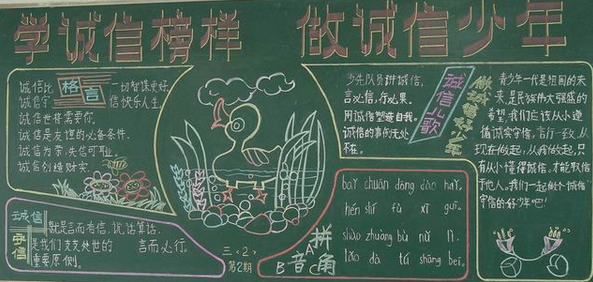 学诚信榜样 做诚信少年
诚信比 格言 一切智谋更好
诚信守 信快乐人生
诚信也将需要你.
诚信是友谊的必备条件.
诚信为荣,失信可耻.
诚信创造财富.
诚信
守信
就是言而有信,说话算话.
是我们 处世的 言而必行.
重要原则.
三〈2〉
第2期
少先队员讲诚信,
言必信,行必果.
用诚信塑造自我.
诚信的事例无处
不在.
诚信儿歌
做诚信好少年
青少年一代是祖国的未
来,是民族伟大强盛的
希望,我们应该从小遵
循诚实守信,言行一致,从
现在做起,从我做起,只
有从小懂得诚信,才能取信
于他人,我们一起做个"诚信"
守信的好少年吧!
拼
音
角
A
B
baǐ chuān dōng dào haǐ,
shí fù xī guī.
shào zhuàng bù nǔ lì.
lǎo dà tú shāng bēi.